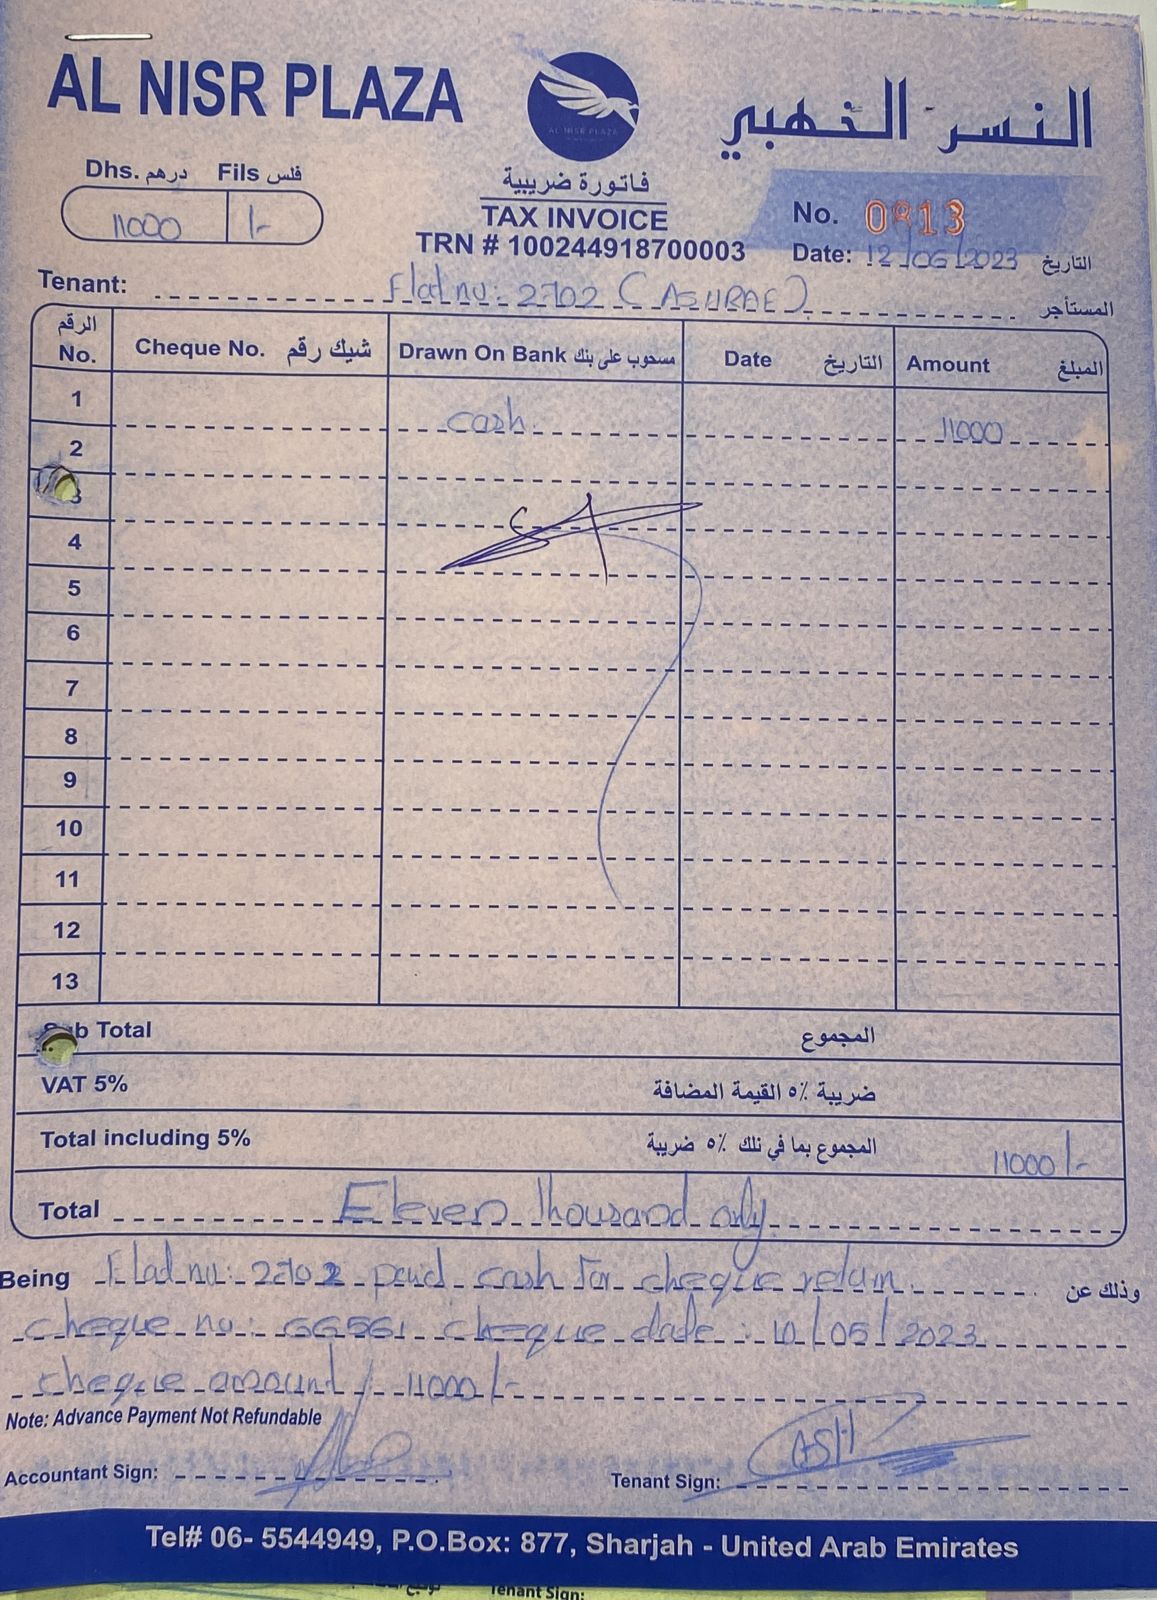 AL NISR PLAZA
النسر الذهبي
AL NISR PLAZA
Dhs. درهم Fils فلس
11000 1/-
فاتورة ضريبية
TAX INVOICE
TRN # 100244918700003
No. 0913
Date: 12/06/2023 التاريخ
Tenant: Flat no: 2702 (ASHRAF) المستأجر
الرقم No. Cheque No. شيك رقم Drawn On Bank مسحوب على بنك Date التاريخ Amount المبلغ
1 cash 11000
2
3
4
5
6
7
8
9
10
11
12
13
Sub Total المجموع
VAT 5% ضريبة ٥٪ القيمة المضافة
Total including 5% المجموع بما في ذلك ٥٪ ضريبة 11000/-
Total Eleven Thousand only
Being Flat no: 2702 paid cash for cheque return. وذلك عن
cheque no: 66561 cheque date: 10/05/2023
cheque amount / 11000/-
Note: Advance Payment Not Refundable
Accountant Sign:
Tenant Sign: ASH
Tel# 06- 5544949, P.O.Box: 877, Sharjah - United Arab Emirates
Tenant Sign: